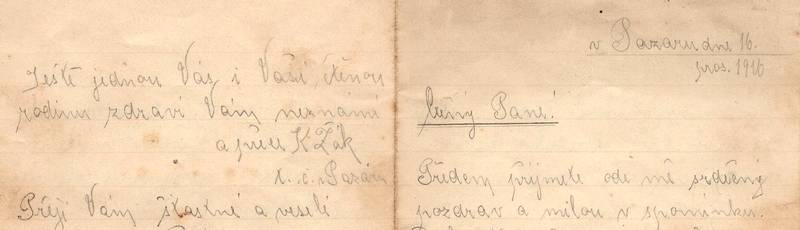 Ještě jednou Vás i Vaší ctěnou
rodinu zdraví Vám neznámí
a přítel K Žák
t. č. Pazáru
Přeji Vám šťastné a veselé
v Pazaru dne 16.
pros. 1916
Ctěný Pane!
Předem přijmete ode mě srdečný
pozdrav a milou v spomínku.